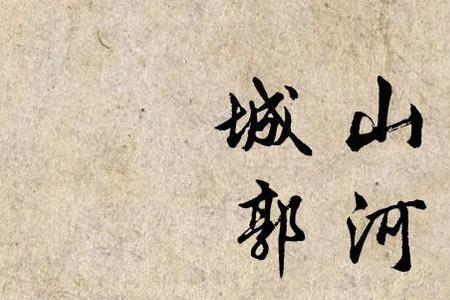 山河
城郭